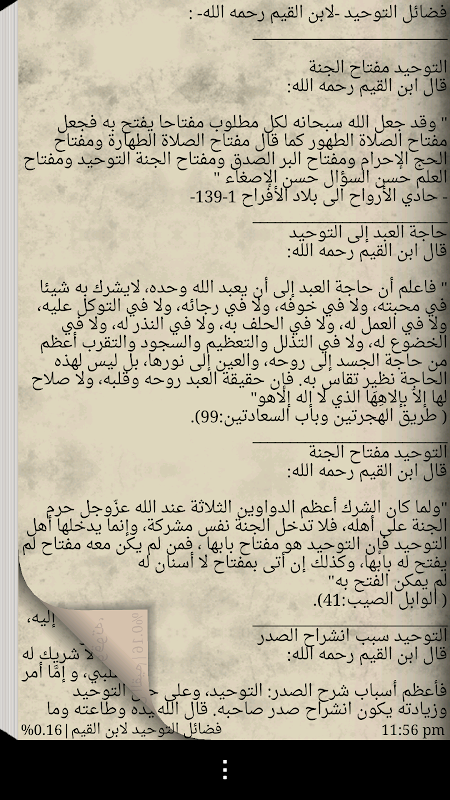 فضائل التوحيد -لابن القيم رحمه الله- :
التوحيد مفتاح الجنة
قال ابن القيم رحمه الله:
" وقد جعل الله سبحانه لكل مطلوب مفتاحا يفتح به فجعل
مفتاح الصلاة الطهور كما قال مفتاح الصلاة الطهارة ومفتاح
الحج الإحرام ومفتاح البر الصدق ومفتاح الجنة التوحيد ومفتاح
العلم حسن السؤال حسن الإصغاء "
- حادي الأرواح الى بلاد الأفراح 1-139-
حاجة العبد إلى التوحيد
قال ابن القيم رحمه الله:
" فاعلم أن حاجة العبد إلى أن يعبد الله وحده، لايشرك به شيئا
في محبته، ولا في خوفه، ولا في رجائه، ولا في التوكل عليه،
ولا في العمل له، ولا في الحلف به، ولا في النذر له، ولا في
الخضوع له، ولا في التذلل والتعظيم والسجود والتقرب أعظم
من حاجة الجسد إلى روحه، والعين إلى نورها، بل ليس لهذه
الحاجة نظير تقاس به. فإن حقيقة العبد روحه وقلبه، ولا صلاح
لها إلا بإلاهِهَا الذي لا إله إلاهو"
( طريق الهجرتين وباب السعادتين:99).
التوحيد مفتاح الجنة
قال ابن القيم رحمه الله:
"ولما كان الشرك أعظم الدواوين الثلاثة عند الله عزّوجل حرم
الجنة على أهله، فلا تدخل الجنة نفس مشركة، وإنما يدخلها أهل
التوحيد فإن التوحيد هو مفتاح بابها ، فمن لم يكن معه مفتاح لم
يفتح له بابها، وكذلك إن أتى بمفتاح لا أسنان له
لم يمكن الفتح به"
( الوابل الصيب:41).
إليه،
التوحيد سبب انشراح الصدر
قال ابن القيم رحمه الله:
لا شريك له
و إمَّا أمر
فأعظم أسباب شرح الصدر: التوحيد، وعلى
التوحيد
وزيادته يكون انشراح صدر صاحبه. قال الله
وطاعته وما
11:56 pm
فضائل التوحيد لابن القيم|%0.16